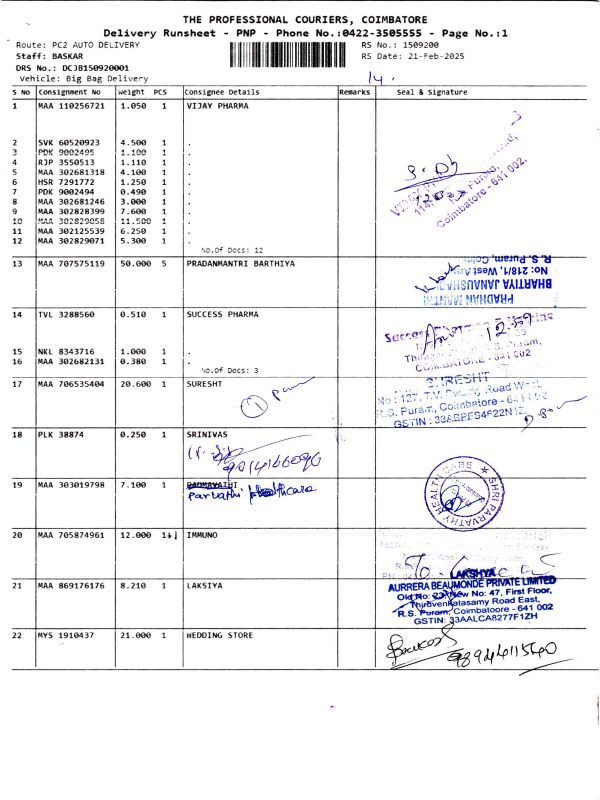 THE PROFESSIONAL COURIERS, COIMBATORE
Delivery Runsheet - PNP - Phone No.:0422-3505555 - Page No.:1
Route: PC2 AUTO DELIVERY
RS No.: 1509200
Staff: BASKAR
RS Date: 21-Feb-2025
DRS No.: DCJB150920001
Vehicle: Big Bag Delivery
14.
S No Consignment No Weight PCS Consignee Details Remarks Seal & Signature
1 MAA 110256721 1.050 1 VIJAY PHARMA
2 SVK 60520923 4.500 1 .
3 PDK 9002495 1.100 1 .
4 RJP 3550513 1.110 1 .
5 MAA 302681318 4.100 1 .
6 HSR 7291772 1.250 1 .
7 PDK 9002494 0.490 1 .
8 MAA 302681246 3.000 1 .
9 MAA 302828399 7.600 1 .
10 MAA 302829058 11.500 1 .
11 MAA 302125539 6.250 1 .
12 MAA 302829071 5.300 1 .
No.Of Docs: 12
Puram,
Coimbatore - 641 002.
13 MAA 707575119 50.000 5 PRADANMANTRI BARTHIYA
PRADHAN MANTRI
BHARTIYA JANAUSHADHI
No: 218/1, West
R. S. Puram,
14 TVL 3288560 0.510 1 SUCCESS PHARMA
15 NKL 8343716 1.000 1 .
16 MAA 302682131 0.380 1 .
No.Of Docs: 3
Success
12.59
S. Puram,
COIMBATORE - 641 002
17 MAA 706535404 20.600 1 SURESHT
SURESHT
No : 127, T.V. Swamy Road West,
R.S. Puram, Coimbatore - 641 002
GSTIN : 33ABPFS4622N1Z
18 PLK 38874 0.250 1 SRINIVAS
19 MAA 303019798 7.100 1 PADMAVATHI
Parvathi Healthcare
SHRI PARVATHY HEALTH CARE
20 MAA 705874961 12.000 1+1 IMMUNO
21 MAA 869176176 8.210 1 LAKSIYA
LAKSHYA
AURRERA BEAUMONDE PRIVATE LIMITED
Old No: 23, New No: 47, First Floor,
Thiruvenkatasamy Road East,
R.S. Puram, Coimbatoore - 641 002
GSTIN: 33AALCA8277F1ZH
22 MYS 1910437 21.000 1 WEDDING STORE